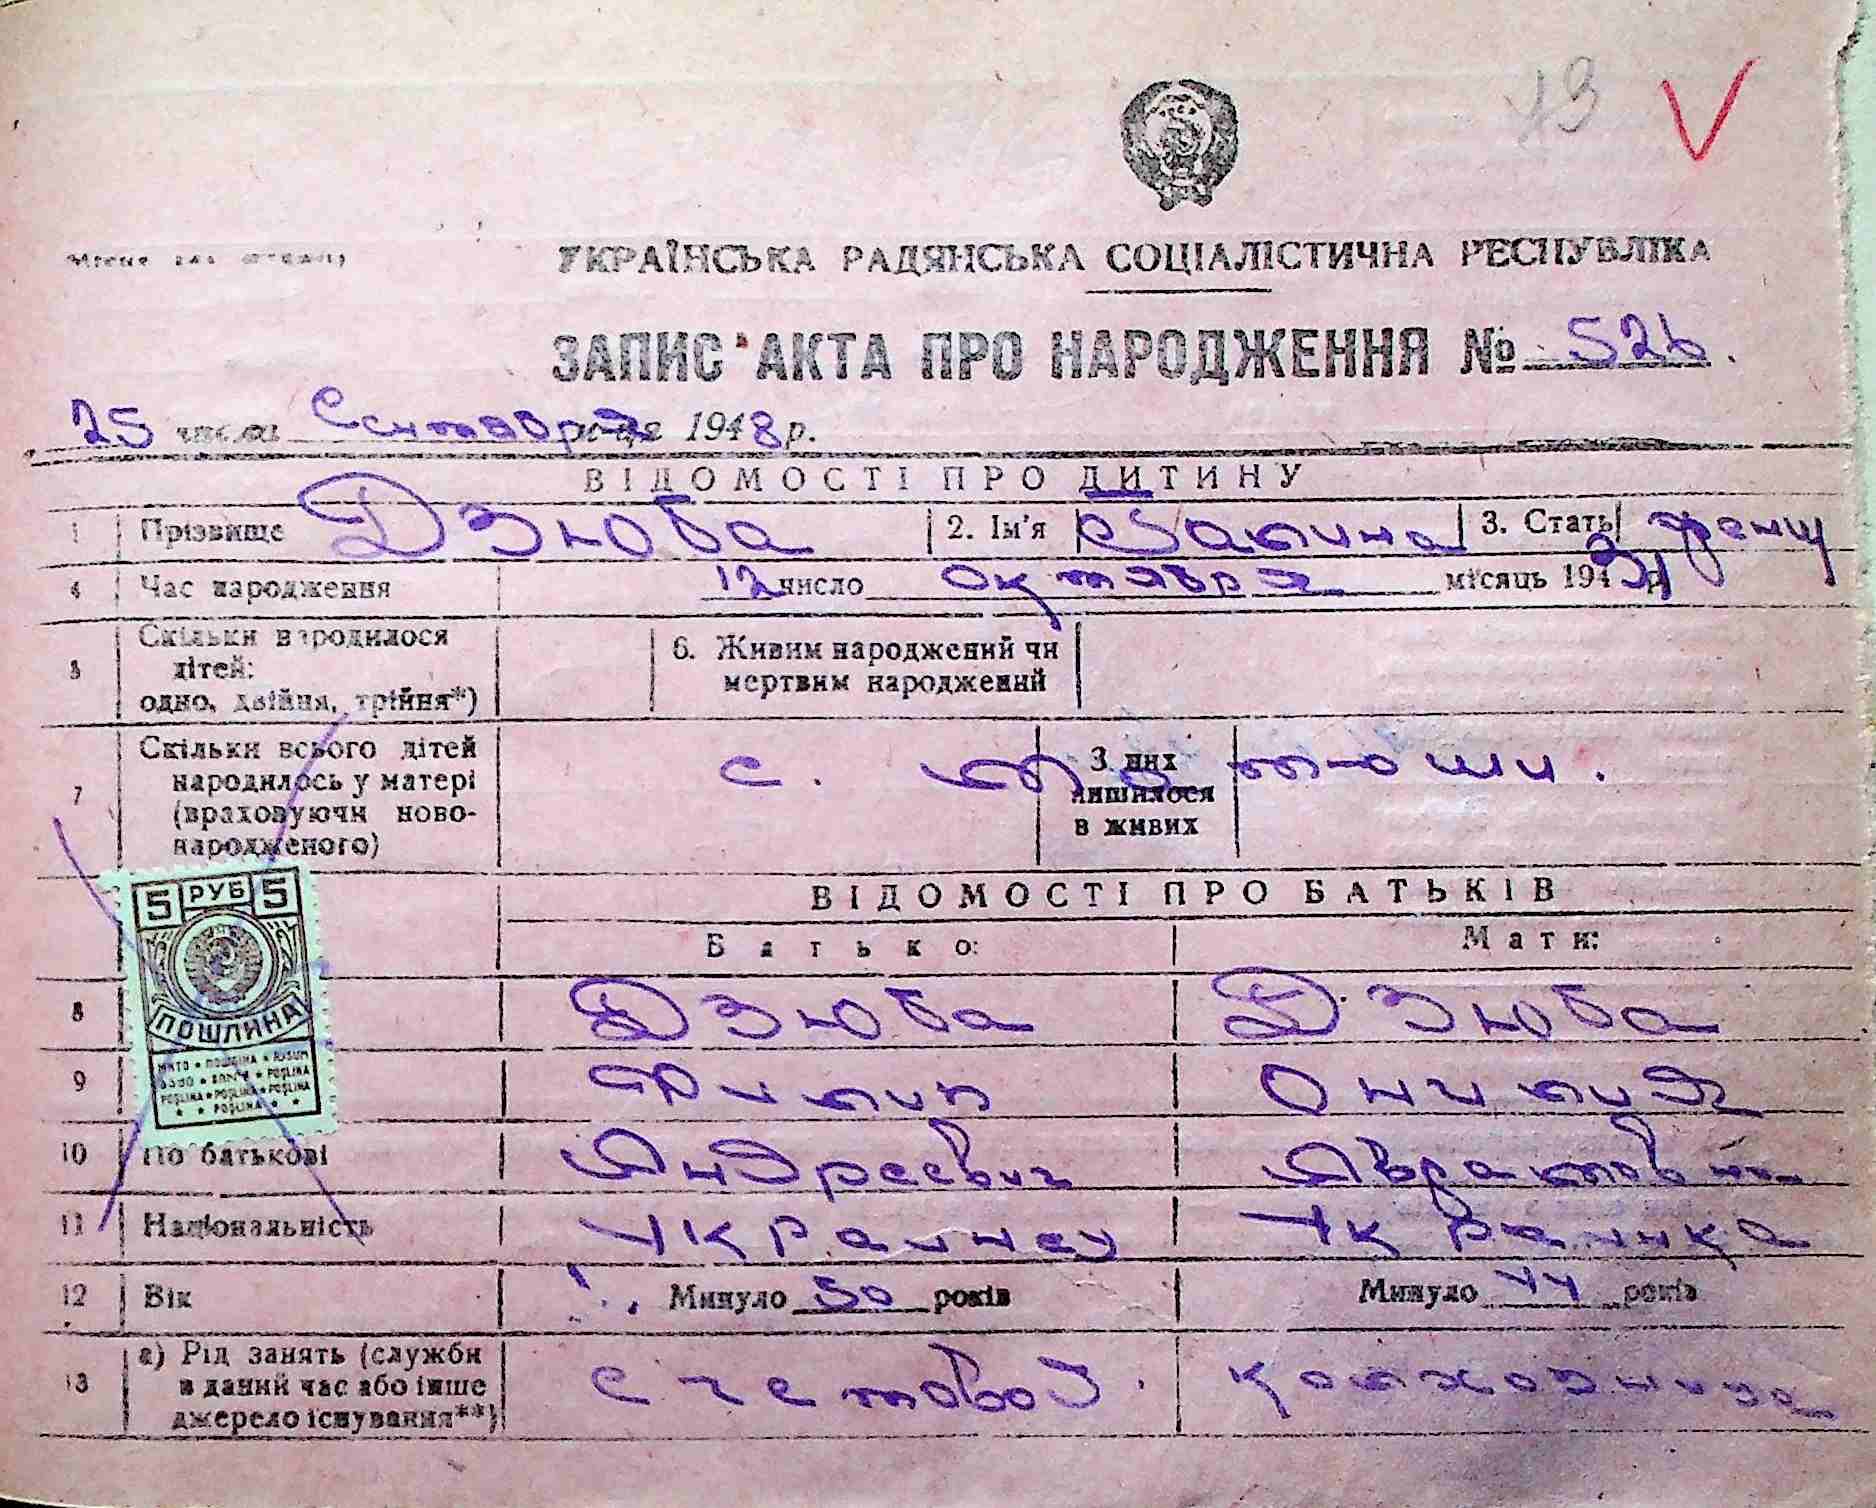 13 V
УКРАЇНСЬКА РАДЯНСЬКА СОЦІАЛІСТИЧНА РЕСПУБЛІКА
ЗАПИС АКТА ПРО НАРОДЖЕННЯ № 526.
25 числа Сентября місяця 1948 р.
ВІДОМОСТІ ПРО ДИТИНУ
1 Прізвище Дзюба 2. Ім'я Галина 3. Стать женщ
4 Час народження 12 число октября місяць 1931 р.
5 Скільки народилося дітей: одно, двійня, трійня*) 6. Живим народжений чи мертвим народжений
7 Скільки всього дітей народилось у матері (враховуючи новонародженого) с. З них лишилося в живих
ВІДОМОСТІ ПРО БАТЬКІВ
Батько: Мати:
5 РУБ 5
ПОШЛИНА
8 Дзюба Дзюба
9 Филип
10 По батькові Андреевич
11 Національність Украинец Украинка
12 Вік Минуло 50 років Минуло 44 років
13 а) Рід занять (служби в даний час або інше джерело існування**) счетовод. колхозница